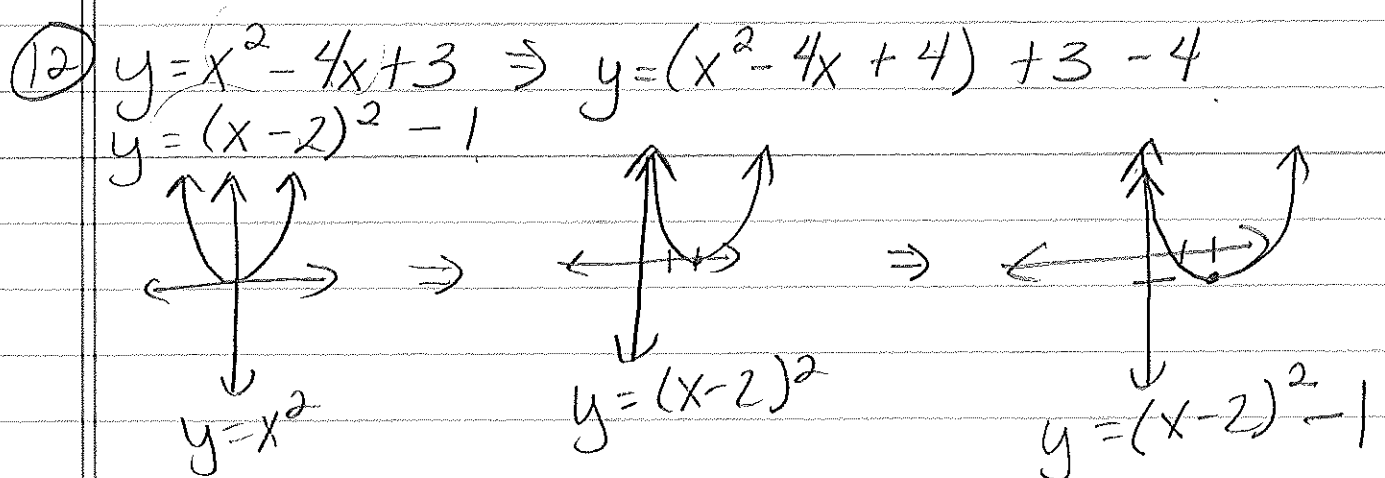 12 y=x² - 4x+3 ⇒ y=(x² - 4x + 4) + 3 - 4
y = (x - 2)² - 1
⇒ ⇒
y=x² y=(x-2)² y=(x-2)² - 1